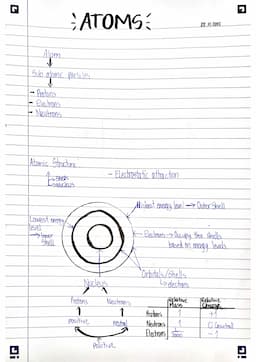 ATOMS
Atom
Sub atomic particles
- Protons
- Electrons
- Neutrons
Atomic Structure
- Electrostatic attraction
Shells
Nucleus
Highest energy level → Outer Shell
Lowest energy level
→ Inner Shell
Electrons → Occupy the shells
based on energy levels
Orbitals/Shells
↳ electrons
Nucleus
Protons Neutrons
Positive neutral
Positive
Relative Mass Relative Charge
Protons 1 +1
Neutrons 1 0 (neutral)
Electrons -1